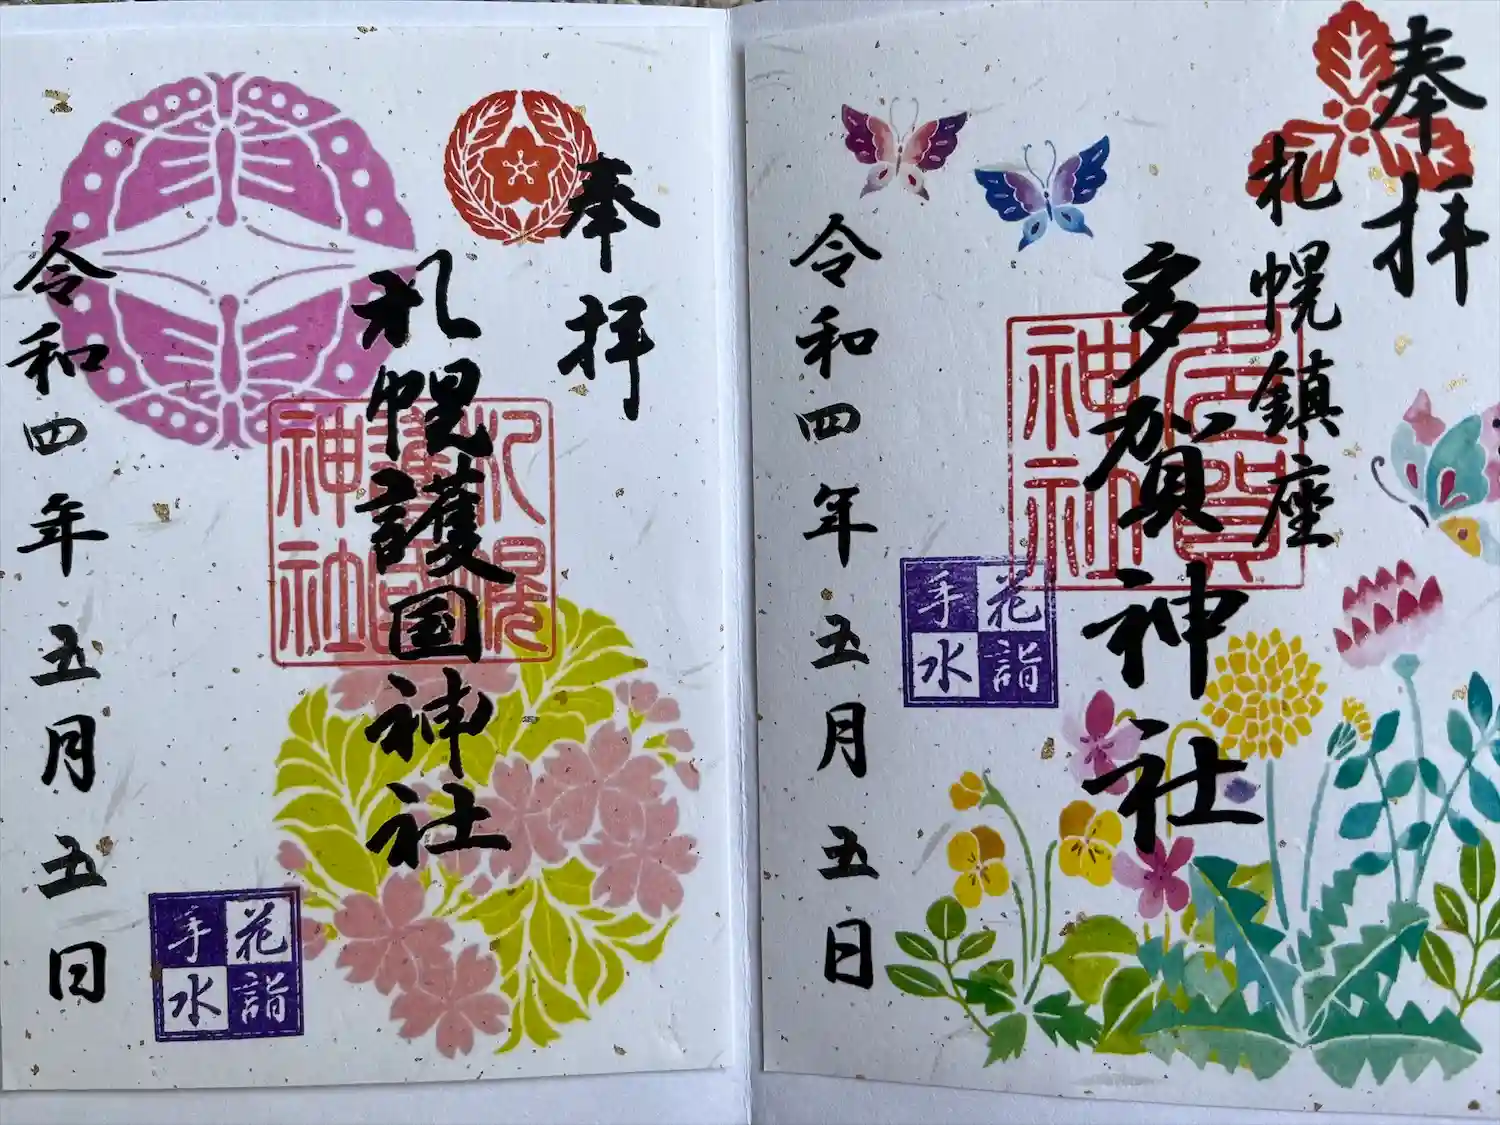 奉拝
札幌護国神社
令和四年五月五日
札幌護国神社
花詣
手水
奉拝
札幌鎮座
多賀神社
令和四年五月五日
多賀神社
花詣
手水